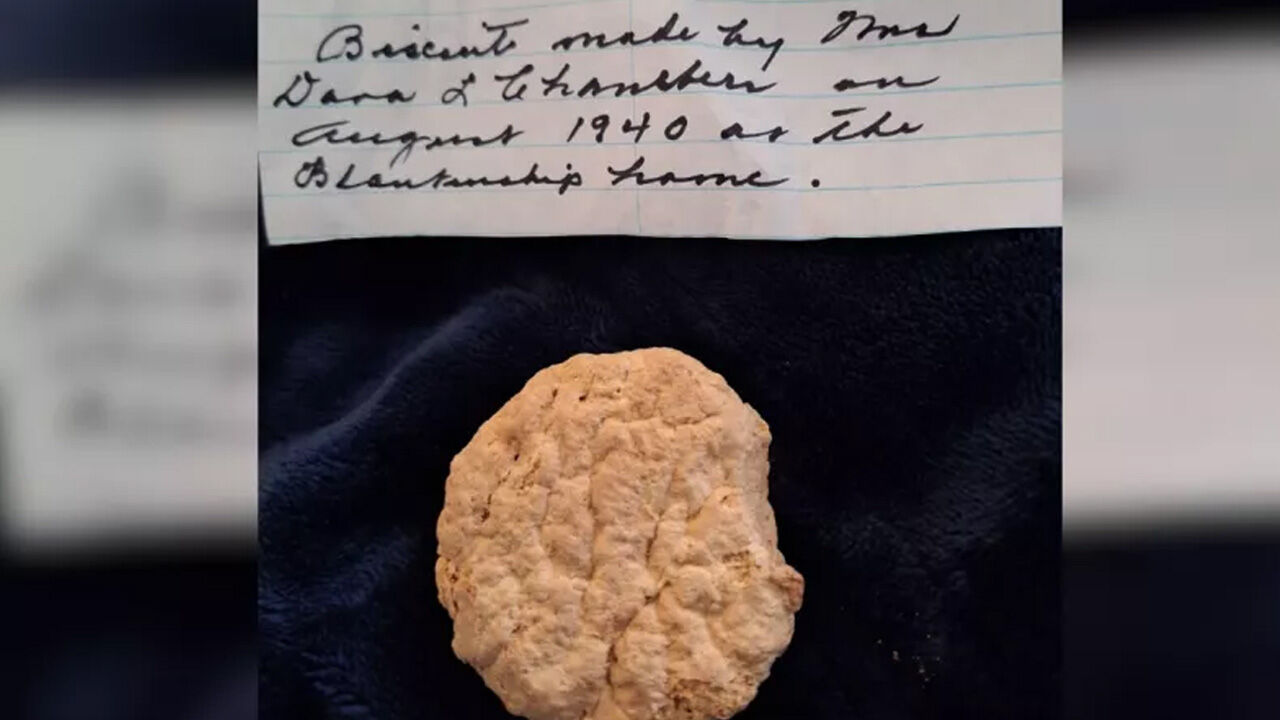 Biscuit made by Mrs
Dora L Chambers on
August 1940 at the
Blankenship home.